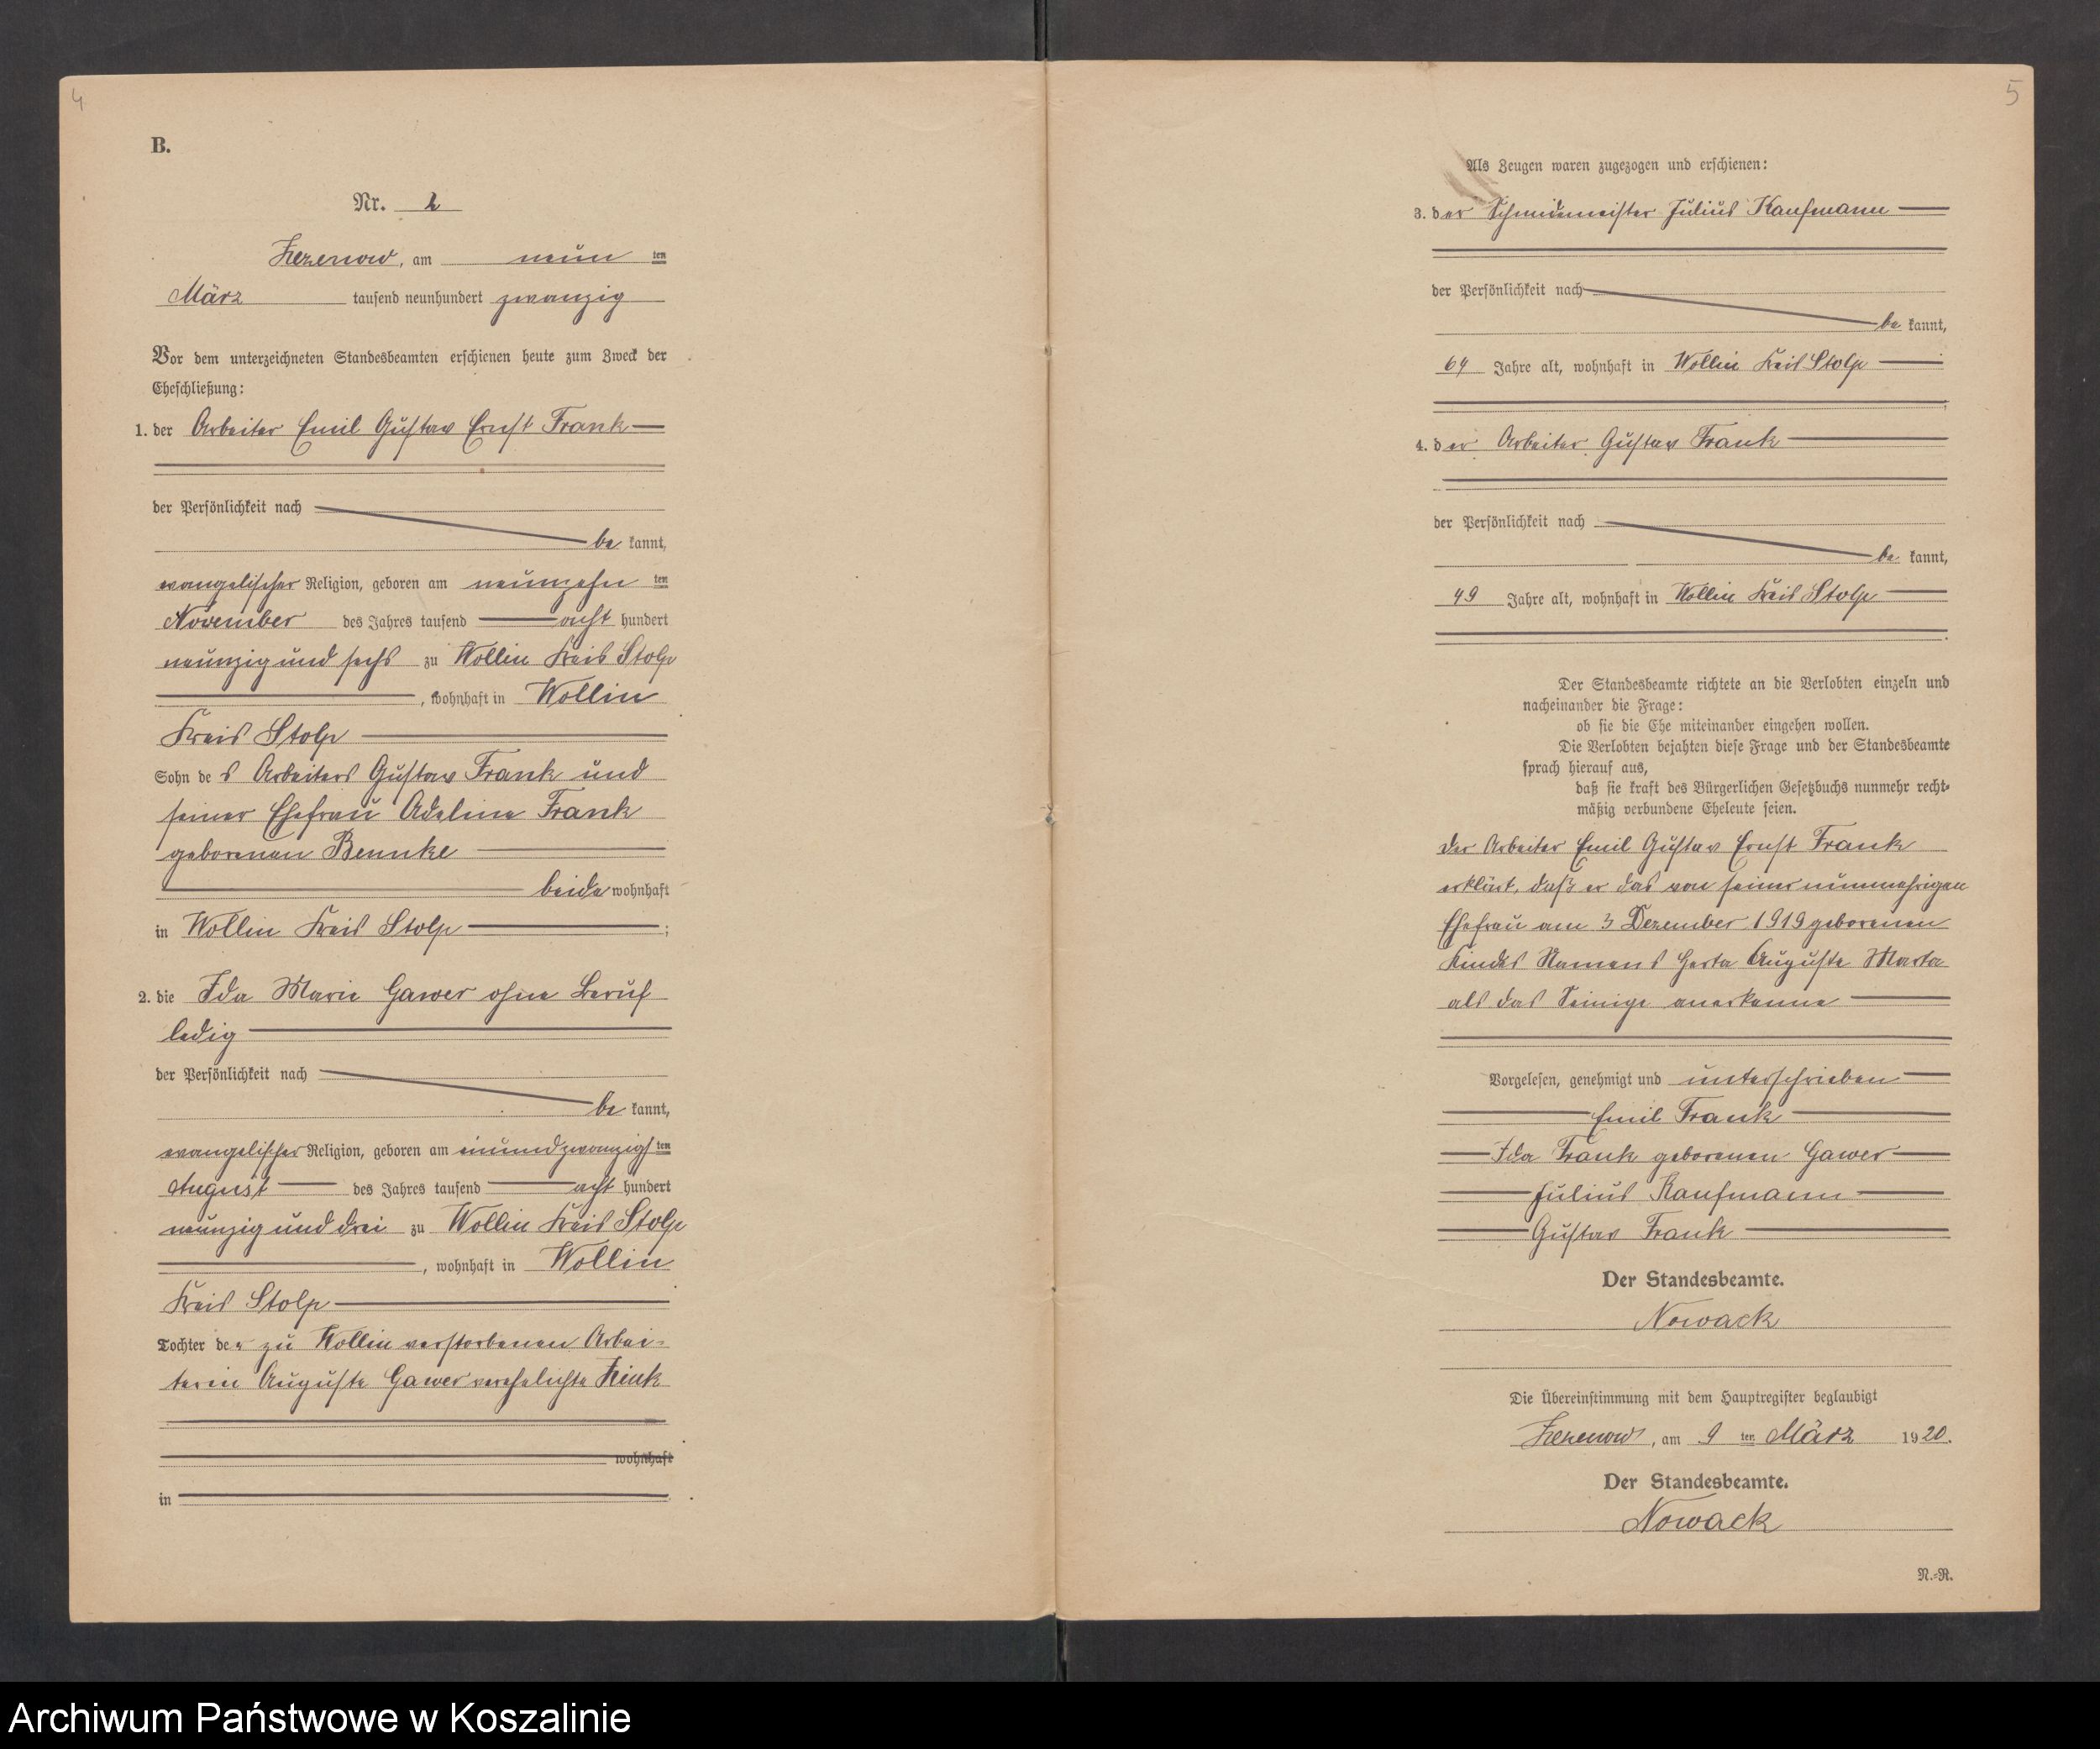 4
B.
Nr. 2
Zezenow, am neun ten
März tausend neunhundert zwanzig
Vor dem unterzeichneten Standesbeamten erschienen heute zum Zweck der
Eheschließung:
1. der Arbeiter Emil Gustav Ernst Frank
der Persönlichkeit nach
be kannt,
evangelischer Religion, geboren am neunzehn ten
November des Jahres tausend acht hundert
neunzig und sechs zu Wollin Kreis Stolp
, wohnhaft in Wollin
Kreis Stolp
Sohn des Arbeiters Gustav Frank und
seiner Ehefrau Adeline Frank
geborenen Bennke
beide wohnhaft
in Wollin Kreis Stolp ;
2. die Ida Marie Gawer ohne Beruf
ledig
der Persönlichkeit nach
be kannt,
evangelischer Religion, geboren am einundzwanzigsten
August des Jahres tausend acht hundert
neunzig und drei zu Wollin Kreis Stolp
, wohnhaft in Wollin
Kreis Stolp
Tochter der zu Wollin verstorbenen Arbei-
terin Auguste Gawer verehelichte
wohnhaft
in
5
Als Zeugen waren zugezogen und erschienen:
3. der Schmiedemeister Julius Kaufmann
der Persönlichkeit nach
be kannt,
64 Jahre alt, wohnhaft in Wollin Kreis Stolp
4. der Arbeiter Gustav Frank
der Persönlichkeit nach
be kannt,
49 Jahre alt, wohnhaft in Wollin Kreis Stolp
Der Standesbeamte richtete an die Verlobten einzeln und
nacheinander die Frage:
ob sie die Ehe miteinander eingehen wollen.
Die Verlobten bejahten diese Frage und der Standesbeamte
sprach hierauf aus,
daß sie kraft des Bürgerlichen Gesetzbuchs nunmehr recht-
mäßig verbundene Eheleute seien.
Der Arbeiter Emil Gustav Ernst Frank
erklärt, daß er das von seiner nunmehrigen
Ehefrau am 3 Dezember 1919 geborenen
Kindes Namens Herta Auguste Marta
als das Seinige anerkenne
Vorgelesen, genehmigt und unterschrieben
Emil Frank
Ida Frank geborenen Gawer
Julius Kaufmann
Gustav Frank
Der Standesbeamte.
Nowack
Die Übereinstimmung mit dem Hauptregister beglaubigt
Zezenow, am 9 ten März 1920.
Der Standesbeamte.
Nowack
N.-R.
Archiwum Państwowe w Koszalinie